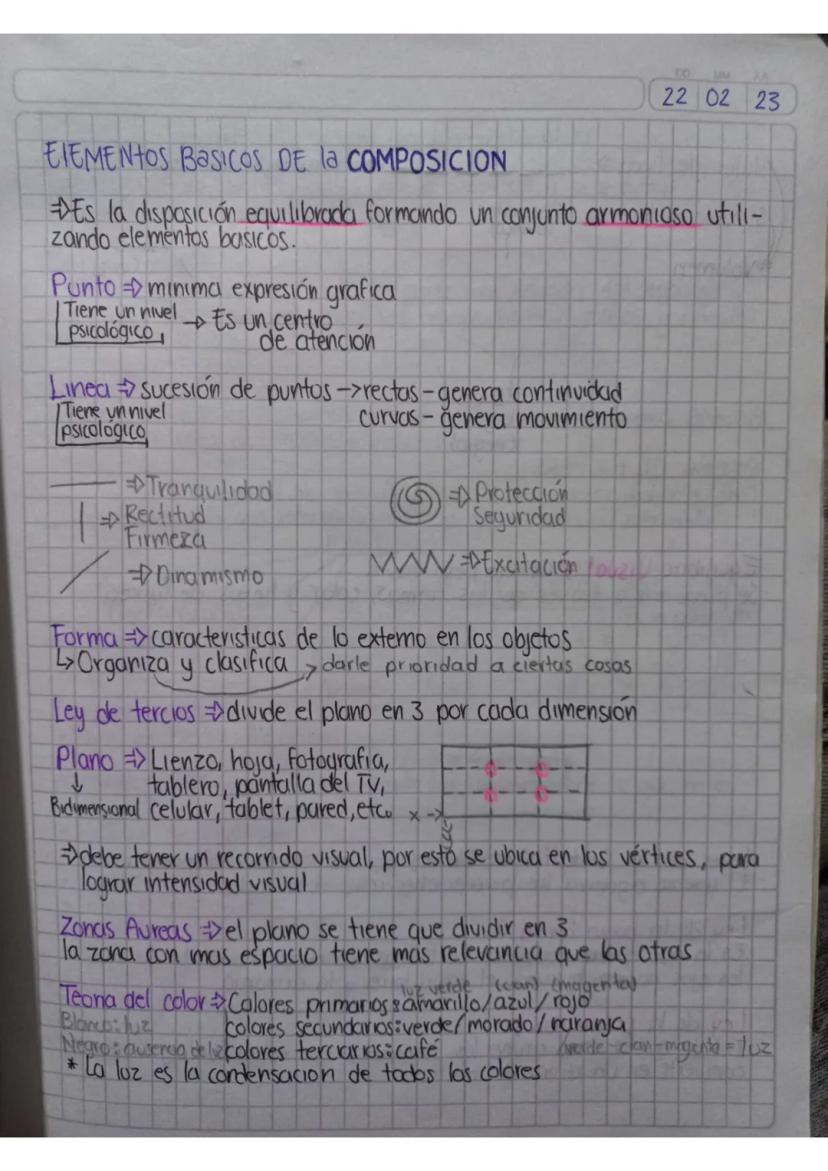 DD MM AA
22 02 23
ElEMENtOS BaSICOS DE la COMPOSICION
⇒Es la disposición equilibrada formando un conjunto armonioso utili-
zando elementos basicos.
Punto ⇒ minima expresión grafica
Tiene un nivel
psicológico → Es un centro
de atención
Linea ⇒ sucesión de puntos → rectas - genera continuidad
Tiene un nivel curvas - genera movimiento
psicológico
⇒ Tranquilidad
⇒ Rectitud
Firmeza
⇒ Dinamismo
⇒ Protección
Seguridad
⇒ Excitación
Forma ⇒ caracteristicas de lo externo en los objetos
↳ Organiza y clasifica → darle prioridad a ciertas cosas
Ley de tercios ⇒ divide el plano en 3 por cada dimensión
Plano ⇒ Lienzo, hoja, fotografia,
↓ tablero, pantalla del TV,
Bidimensional celular, tablet, pared, etc. x →
y
⇒ debe tener un recorrido visual, por esto se ubica en los vértices, para
lograr intensidad visual
Zonas Aureas ⇒ el plano se tiene que dividir en 3
la zona con mas espacio tiene mas relevancia que las otras
luz verde (cian) (magenta)
Teoria del color ⇒ Colores primarios: amarillo/azul/rojo
Blanco: luz colores secundarios: verde/morado/naranja
Negro: ausencia de luz colores terciarios: café verde-cian-magenta = luz
* La luz es la condensacion de todos los colores